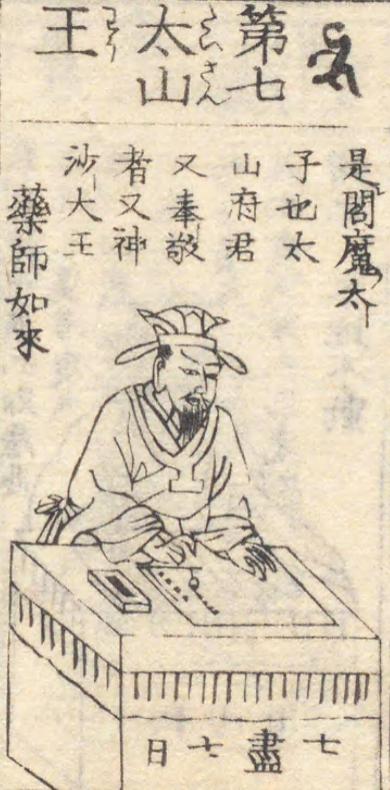 第七
太山
たいさん
王
わう
是閻魔太
子也太
山府君
又奉敬
者又神
沙大王
藥師如來
七盡七日